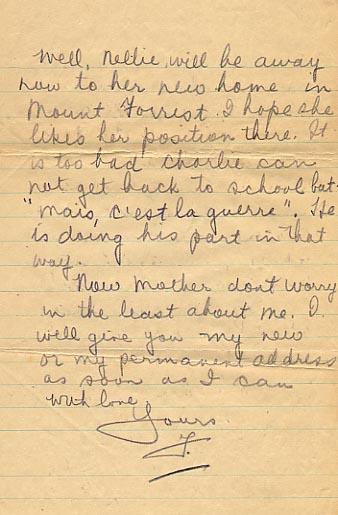 Well, Nellie, will be away
now to her new home in
Mount Forrest. I hope she
likes her position there. It
is too bad Charlie can
not get back to school but-
"mais, c'est la guerre". He
is doing his part in that
way.
Now Mother dont worry
in the least about me. I
will give you my new
or my permanent address
as soon as I can
with love
Yours
F.